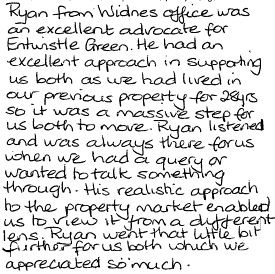 Ryan from Widnes office was
an excellent advocate for
Entwistle Green. He had an
excellent approach in supporting
us both as we had lived in
our previous property for 28yrs
so it was a massive step for
us both to move. Ryan listened
and was always there for us
when we had a query or
wanted to talk something
through. His realistic approach
to the property market enabled
us to view it from a different
lens. Ryan went that little bit
further for us both which we
appreciated so much.